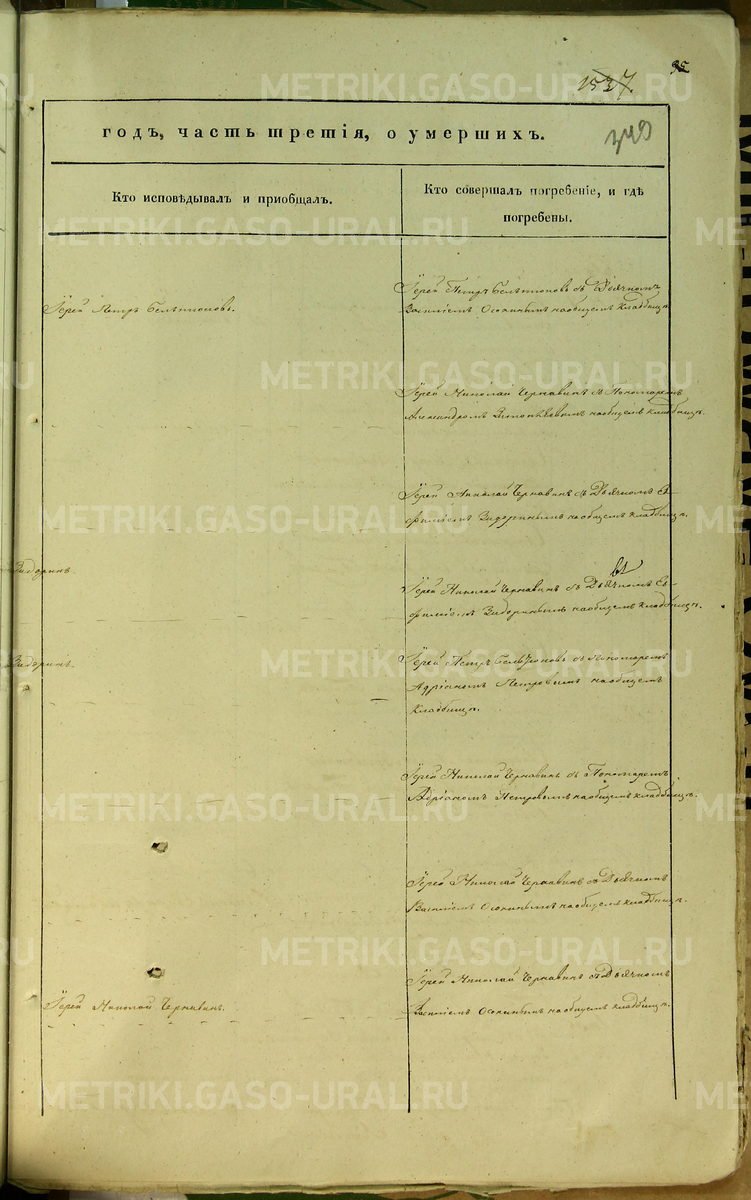 95
1537.
349
годъ, часть третія, о умершихъ.
Кто исповѣдывалъ и приобщалъ.
Кто совершалъ погребеніе, и гдѣ
погребены.
Іерей Петръ
Іерей Петръ съ Дьячкомъ
Василіемъ Осокинымъ на общемъ кладбищѣ.
Іерей Николай Чернавинъ съ Пономаремъ
Александромъ на общемъ кладбищѣ.
Іерей Николай Чернавинъ съ Дьячкомъ Ев-
фиміемъ Зидоринымъ на общемъ кладбищѣ.
Зидоринъ.
Іерей Николай Чернавинъ съ Дьячкомъ Ев-
фиміемъ Зидоринымъ на общемъ кладбищѣ.
Зидоринъ.
Іерей Петръ съ Пономаремъ
Адріаномъ Петровымъ на общемъ
кладбищѣ.
Іерей Николай Чернавинъ съ Пономаремъ
Адріаномъ Петровымъ на общемъ кладбищѣ.
Іерей Николай Чернавинъ съ Дьячкомъ
Василіемъ Осокинымъ на общемъ кладбищѣ.
Іерей Николай Чернавинъ съ Дьячкомъ
Іерей Николай Чернавинъ.
Василіемъ Осокинымъ на общемъ кладбищѣ.
METRIKI.GASO-URAL.RU